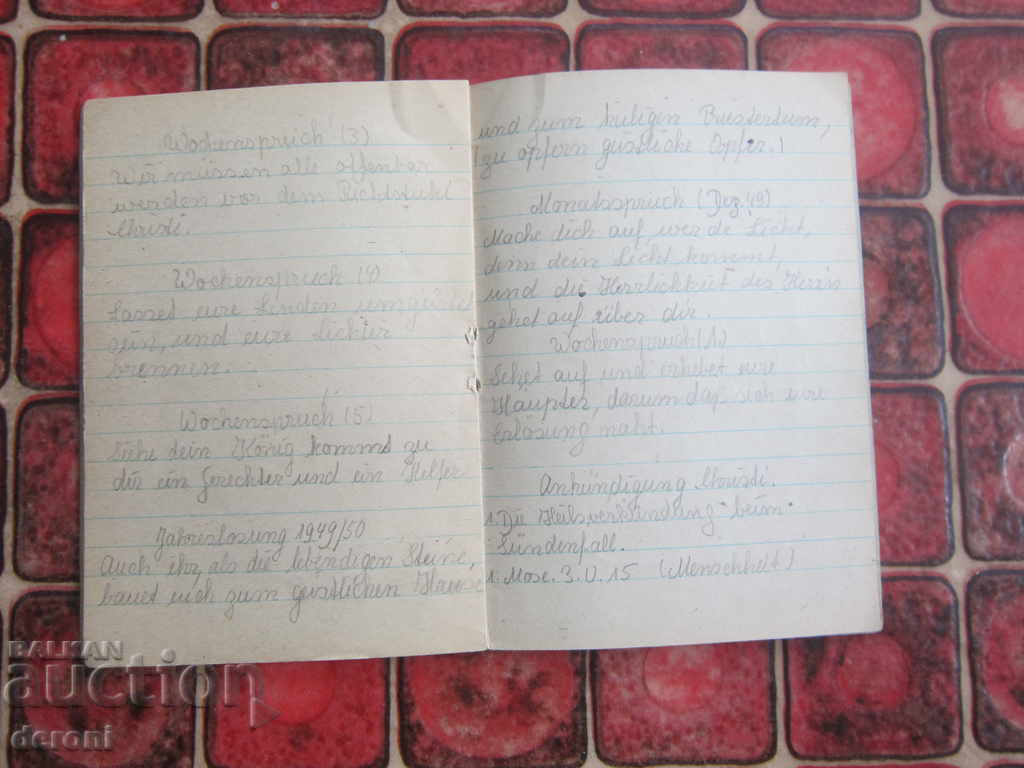 Wochenspruch (3)
Wir müssen alle offenbar
werden vor dem Richtstuhl
Christi.
Wochenspruch (4)
Lasset eure Lenden umgürtet
sein, und eure Lichter
brennen.
Wochenspruch (5)
Siehe dein König kommt zu
dir ein Gerechter und ein Helfer
Jahreslosung 1949/50
Auch ihr, als die lebendigen Steine,
bauet euch zum geistlichen Hause
und zum heiligen Priestertum,
zu opfern geistliche Opfer.!
Monatsspruch (Dez. 49)
Mache dich auf werde Licht,
denn dein Licht kommt,
und die Herrlichkeit des Herrn
gehet auf über dir.
Wochenspruch (1.)
Sehet auf und erhebet eure
Häupter, darum daß sich eure
Erlösung naht.
Ankündigung Christi.
1. Die Heilsverkündung beim
Sündenfall.
1. Mose. 3. V. 15 (Menschheit)
BALKAN
auction
deroni